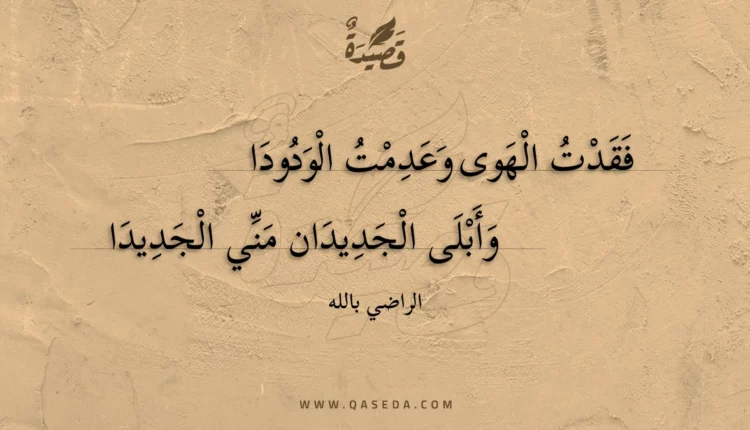 قَصِيدَةٌ
فَقَدْتُ الْهَوى وَعَدِمْتُ الْوَدُودَا
وَأَبْلَى الْجَدِيدَان مَنِّي الْجَدِيدَا
الراضي بالله
WWW.QASEDA.COM